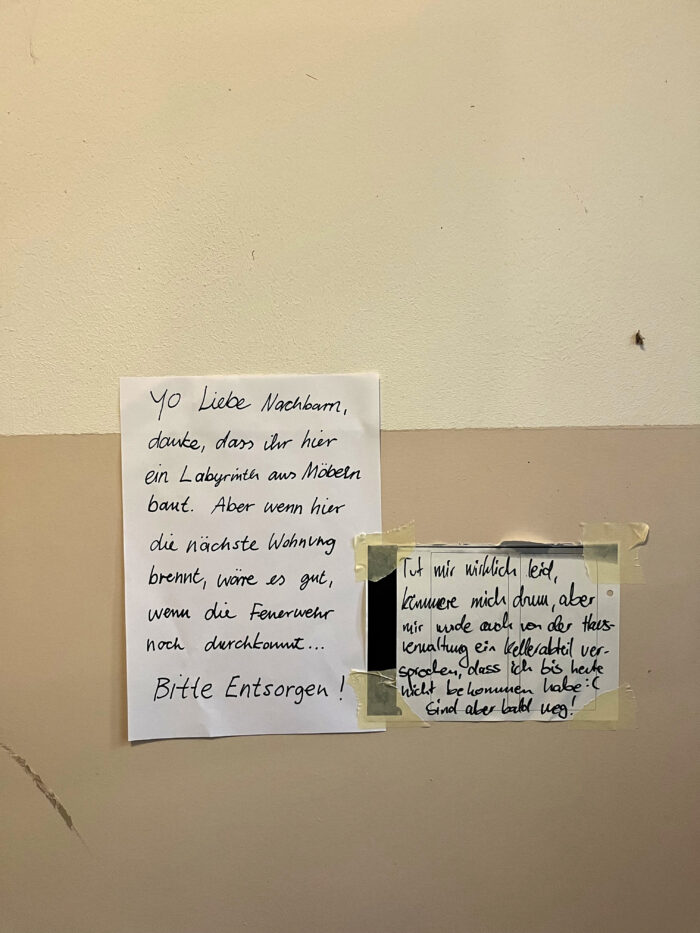 Yo Liebe Nachbarn,
danke, dass ihr hier
ein Labyrinth aus Möbeln
baut. Aber wenn hier
die nächste Wohnung
brennt, wäre es gut,
wenn die Feuerwehr
noch durchkommt...
Bitte Entsorgen!
Tut mir wirklich leid,
kümmere mich drum, aber
mir wurde auch von der Haus-
verwaltung ein Kellerabteil ver-
sprochen, dass ich bis heute
nicht bekommen habe :(
Sind aber bald weg!